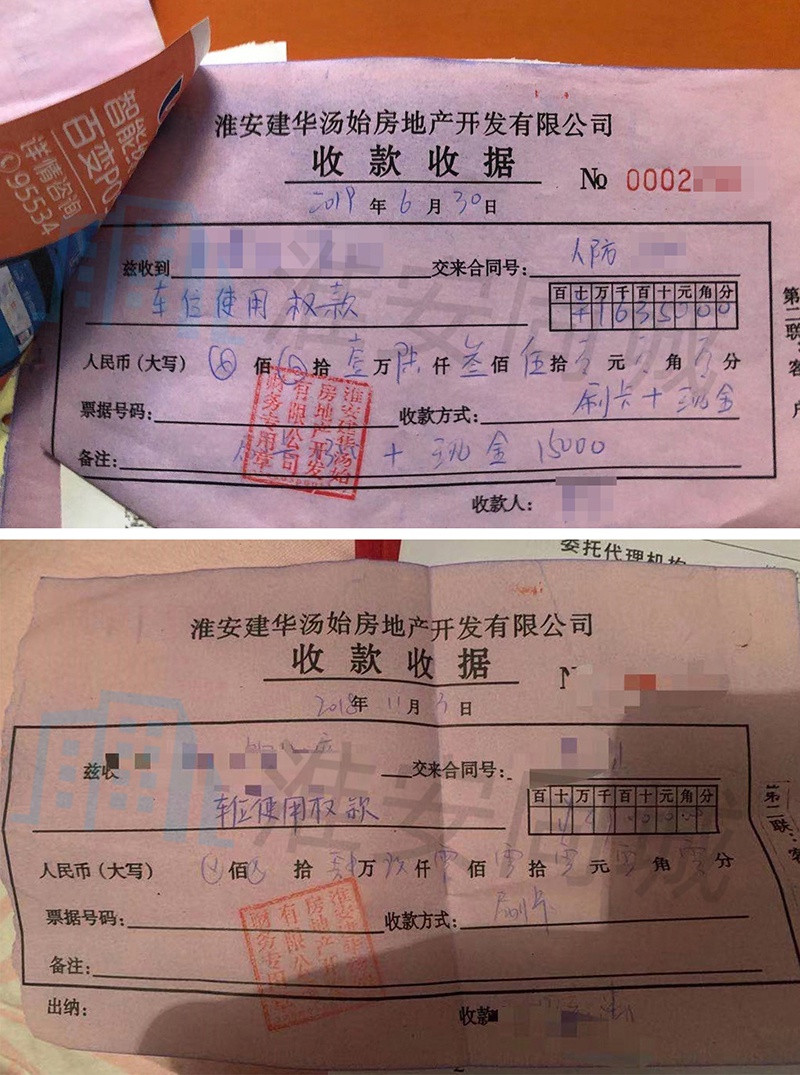 智能
百变PO
详情咨询
95534
淮安建华汤始房地产开发有限公司
收款收据
№ 0002
2019年6月30日
兹收到 交来合同号：人防
车位使用权款
百十万千百十元角分
¥1635000
人民币（大写）⊗佰⊗拾壹万陆仟叁佰伍拾零元零角零分
票据号码： 收款方式：刷卡+现金
备注： + 现金 15000
收款人：
淮安建华汤始
房地产开发
有限公司
财务专用章
第二联：客户
淮安同城
委托代理机构
淮安建华汤始房地产开发有限公司
收款收据
2018年11月3日
兹收 交来合同号：
车位使用权款
百十万千百十元角分
人民币（大写） 佰 拾 万玖仟零佰零拾零元零角零分
票据号码： 收款方式：刷卡
备注：
出纳： 收款
淮安建华汤始
房地产开发
有限公司
财务专用章
第二联：客
淮安同城